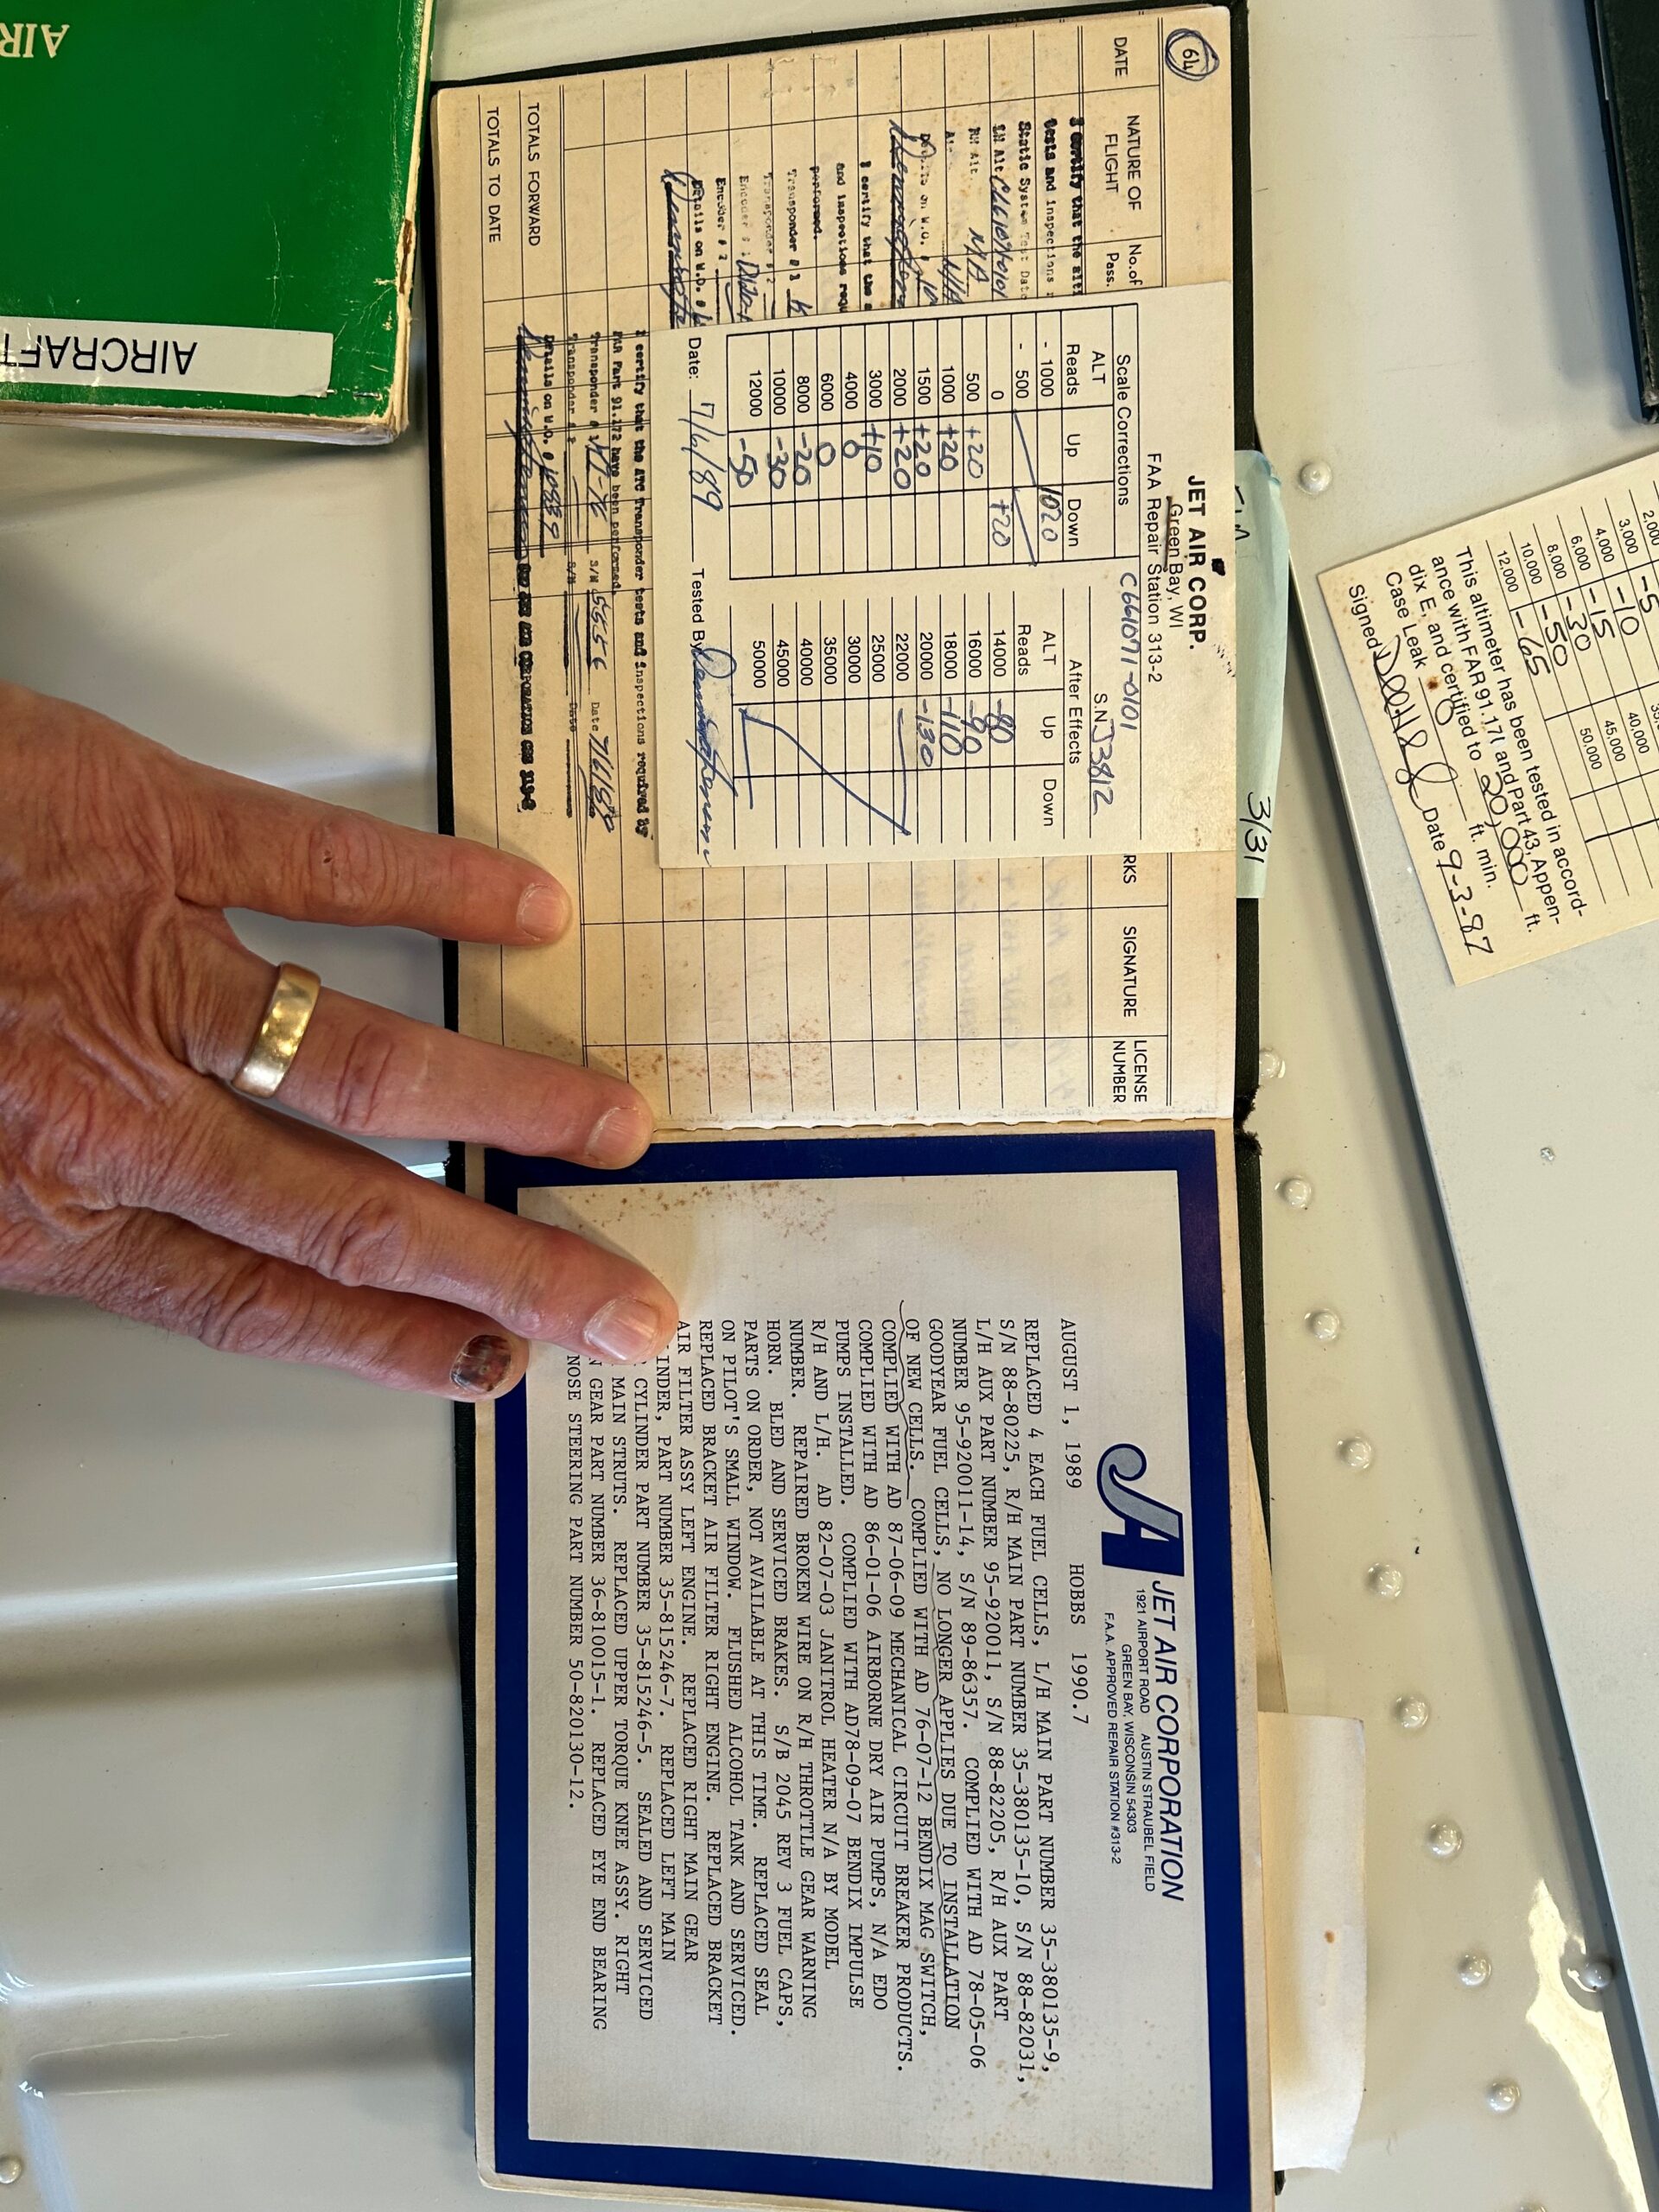 64
DATE
NATURE OF FLIGHT
No. of Pass.
RKS
SIGNATURE
LICENSE NUMBER
I certify that the alti
tests and inspections
Static System Test Date
LH Alt C661071-0101
RH Alt N/A
N/A
Details on W.O. #
I certify that the a
and inspections requ
performed.
Transponder # 1
Transponder # 2
Encoder #
Encoder # 2
Details on W.O. #
TOTALS FORWARD
TOTALS TO DATE
JET AIR CORP.
Green Bay, WI
FAA Repair Station 313-2
C661071-0101
Scale Corrections
S.N. J3812
ALT Reads Up Down
After Effects
ALT Reads Up Down
- 1000 1020
- 500
0 +20
500 +20
1000 +20
1500 +20
2000 +20
3000 +10
4000 0
6000 0
8000 -20
10000 -30
12000 -50
14000 -80
16000 -90
18000 -110
20000 -130
22000
25000
30000
35000
40000
45000
50000
Date: 7/6/89 Tested By
I certify that the ATC Transponder tests and inspections required by
FAR Part 91.172 have been performed.
Transponder # 1 S/N 5556 Date 7/6/89
Transponder # 2 S/N Date
Details on W.O. # 10839
JET AIR CORPORATION CRS 313-2
JA JET AIR CORPORATION
1921 AIRPORT ROAD AUSTIN STRAUBEL FIELD
GREEN BAY, WISCONSIN 54303
F.A.A. APPROVED REPAIR STATION #313-2
AUGUST 1, 1989 HOBBS 1990.7
REPLACED 4 EACH FUEL CELLS, L/H MAIN PART NUMBER 35-380135-9,
S/N 88-80225, R/H MAIN PART NUMBER 35-380135-10, S/N 88-82031,
L/H AUX PART NUMBER 95-920011, S/N 88-82205, R/H AUX PART
NUMBER 95-920011-14, S/N 89-86357. COMPLIED WITH AD 78-05-06
GOODYEAR FUEL CELLS, NO LONGER APPLIES DUE TO INSTALLATION
OF NEW CELLS. COMPLIED WITH AD 76-07-12 BENDIX MAG SWITCH,
COMPLIED WITH AD 87-06-09 MECHANICAL CIRCUIT BREAKER PRODUCTS.
COMPLIED WITH AD 86-01-06 AIRBORNE DRY AIR PUMPS, N/A EDO
PUMPS INSTALLED. COMPLIED WITH AD78-09-07 BENDIX IMPULSE
R/H AND L/H. AD 82-07-03 JANITROL HEATER N/A BY MODEL
NUMBER. REPAIRED BROKEN WIRE ON R/H THROTTLE GEAR WARNING
HORN. BLED AND SERVICED BRAKES. S/B 2045 REV 3 FUEL CAPS,
PARTS ON ORDER, NOT AVAILABLE AT THIS TIME. REPLACED SEAL
ON PILOT'S SMALL WINDOW. FLUSHED ALCOHOL TANK AND SERVICED.
REPLACED BRACKET AIR FILTER RIGHT ENGINE. REPLACED BRACKET
AIR FILTER ASSY LEFT ENGINE. REPLACED RIGHT MAIN GEAR
INDER, PART NUMBER 35-815246-7. REPLACED LEFT MAIN
CYLINDER PART NUMBER 35-815246-5. SEALED AND SERVICED
MAIN STRUTS. REPLACED UPPER TORQUE KNEE ASSY. RIGHT
N GEAR PART NUMBER 36-810015-1. REPLACED EYE END BEARING
NOSE STEERING PART NUMBER 50-820130-12.
3/31
AIR
AIRCRAFT
2,000 -5
3,000 -10
4,000 -15
6,000 -30
8,000 -50
10,000 -65
12,000
40,000
45,000
50,000
This altimeter has been tested in accord-
ance with FAR 91.171 and Part 43, Appen-
dix E, and certified to 20,000 ft.
Case Leak 0 ft. min.
Signed Date 9-3-87